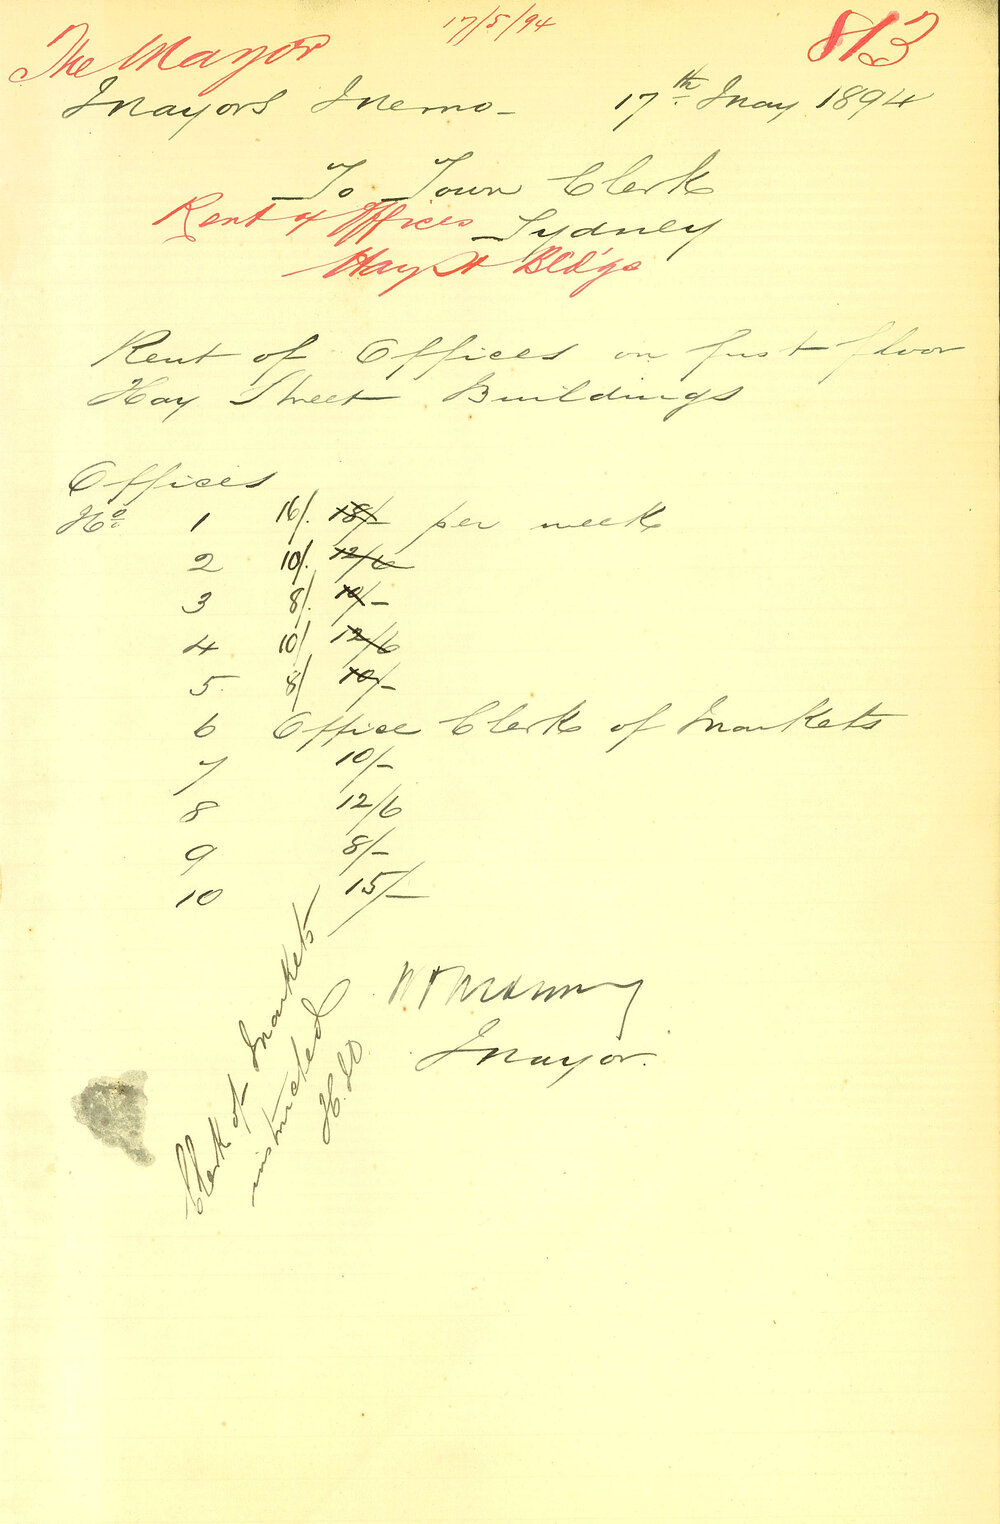 17/5/94
The Mayor
813
Mayors Memo - 17th May 1894
To Town Clerk
Sydney
Rent of Offices
Hay St Bld'gs
Rent of Offices on first floor
Hay Street Buildings
Offices
No 1 16/. 18/- per week
2 10/. 12/6
3 8/. 10/-
4 10/ 12/6
5. 8/ 10/-
6 Office Clerk of Markets
7 10/-
8 12/6
9 8/-
10 15/-
Manning
Mayor.
Clerk of Markets
instructed